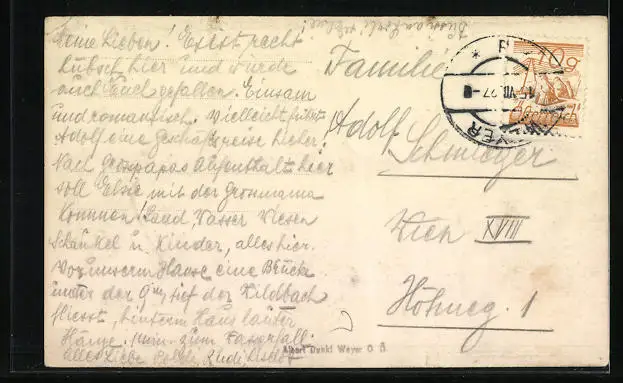 Meine Lieben! Es ist recht
hübsch hier und würde
auch Euch gefallen. Einsam
und romantisch. Vielleicht führt
Adolf eine Geschäftsreise hieher!
Nach Grosspapas Aufenthalt hier
soll Elsie mit der Grossmama
kommen! Sand, Wasser Wiesen
Schaukel u. Kinder, alles hier.
Vor unserm Hause eine Brücke
unter der 9m tief der Wildbach
fliesst, hinterm Haus lauter
Hänge. zum Wasserfall.
alles Liebe Rudi
Familie
Adolf
Wien XVIII
Höhneg. 1
10 g
10 Groschen
WEYER
15. VII. 27
Albert Dunkl Weyer O. Ö.